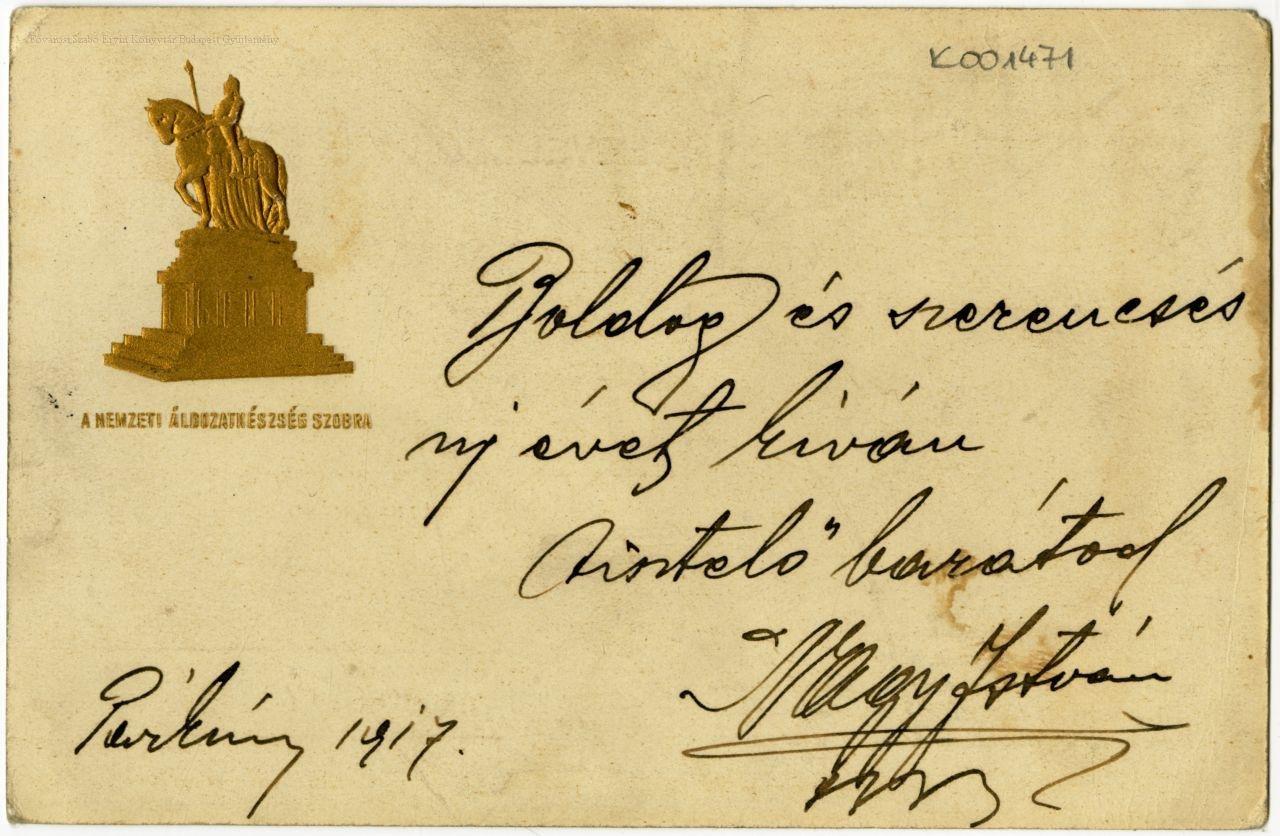 Fővárosi Szabó Ervin Könyvtár Budapest Gyűjtemény
K001471
A NEMZETI ÁLDOZATKÉSZSÉG SZOBRA
Boldog és szerencsés
uj évet kiván
tisztelő barátod
Nagy István
Párkány 1917.